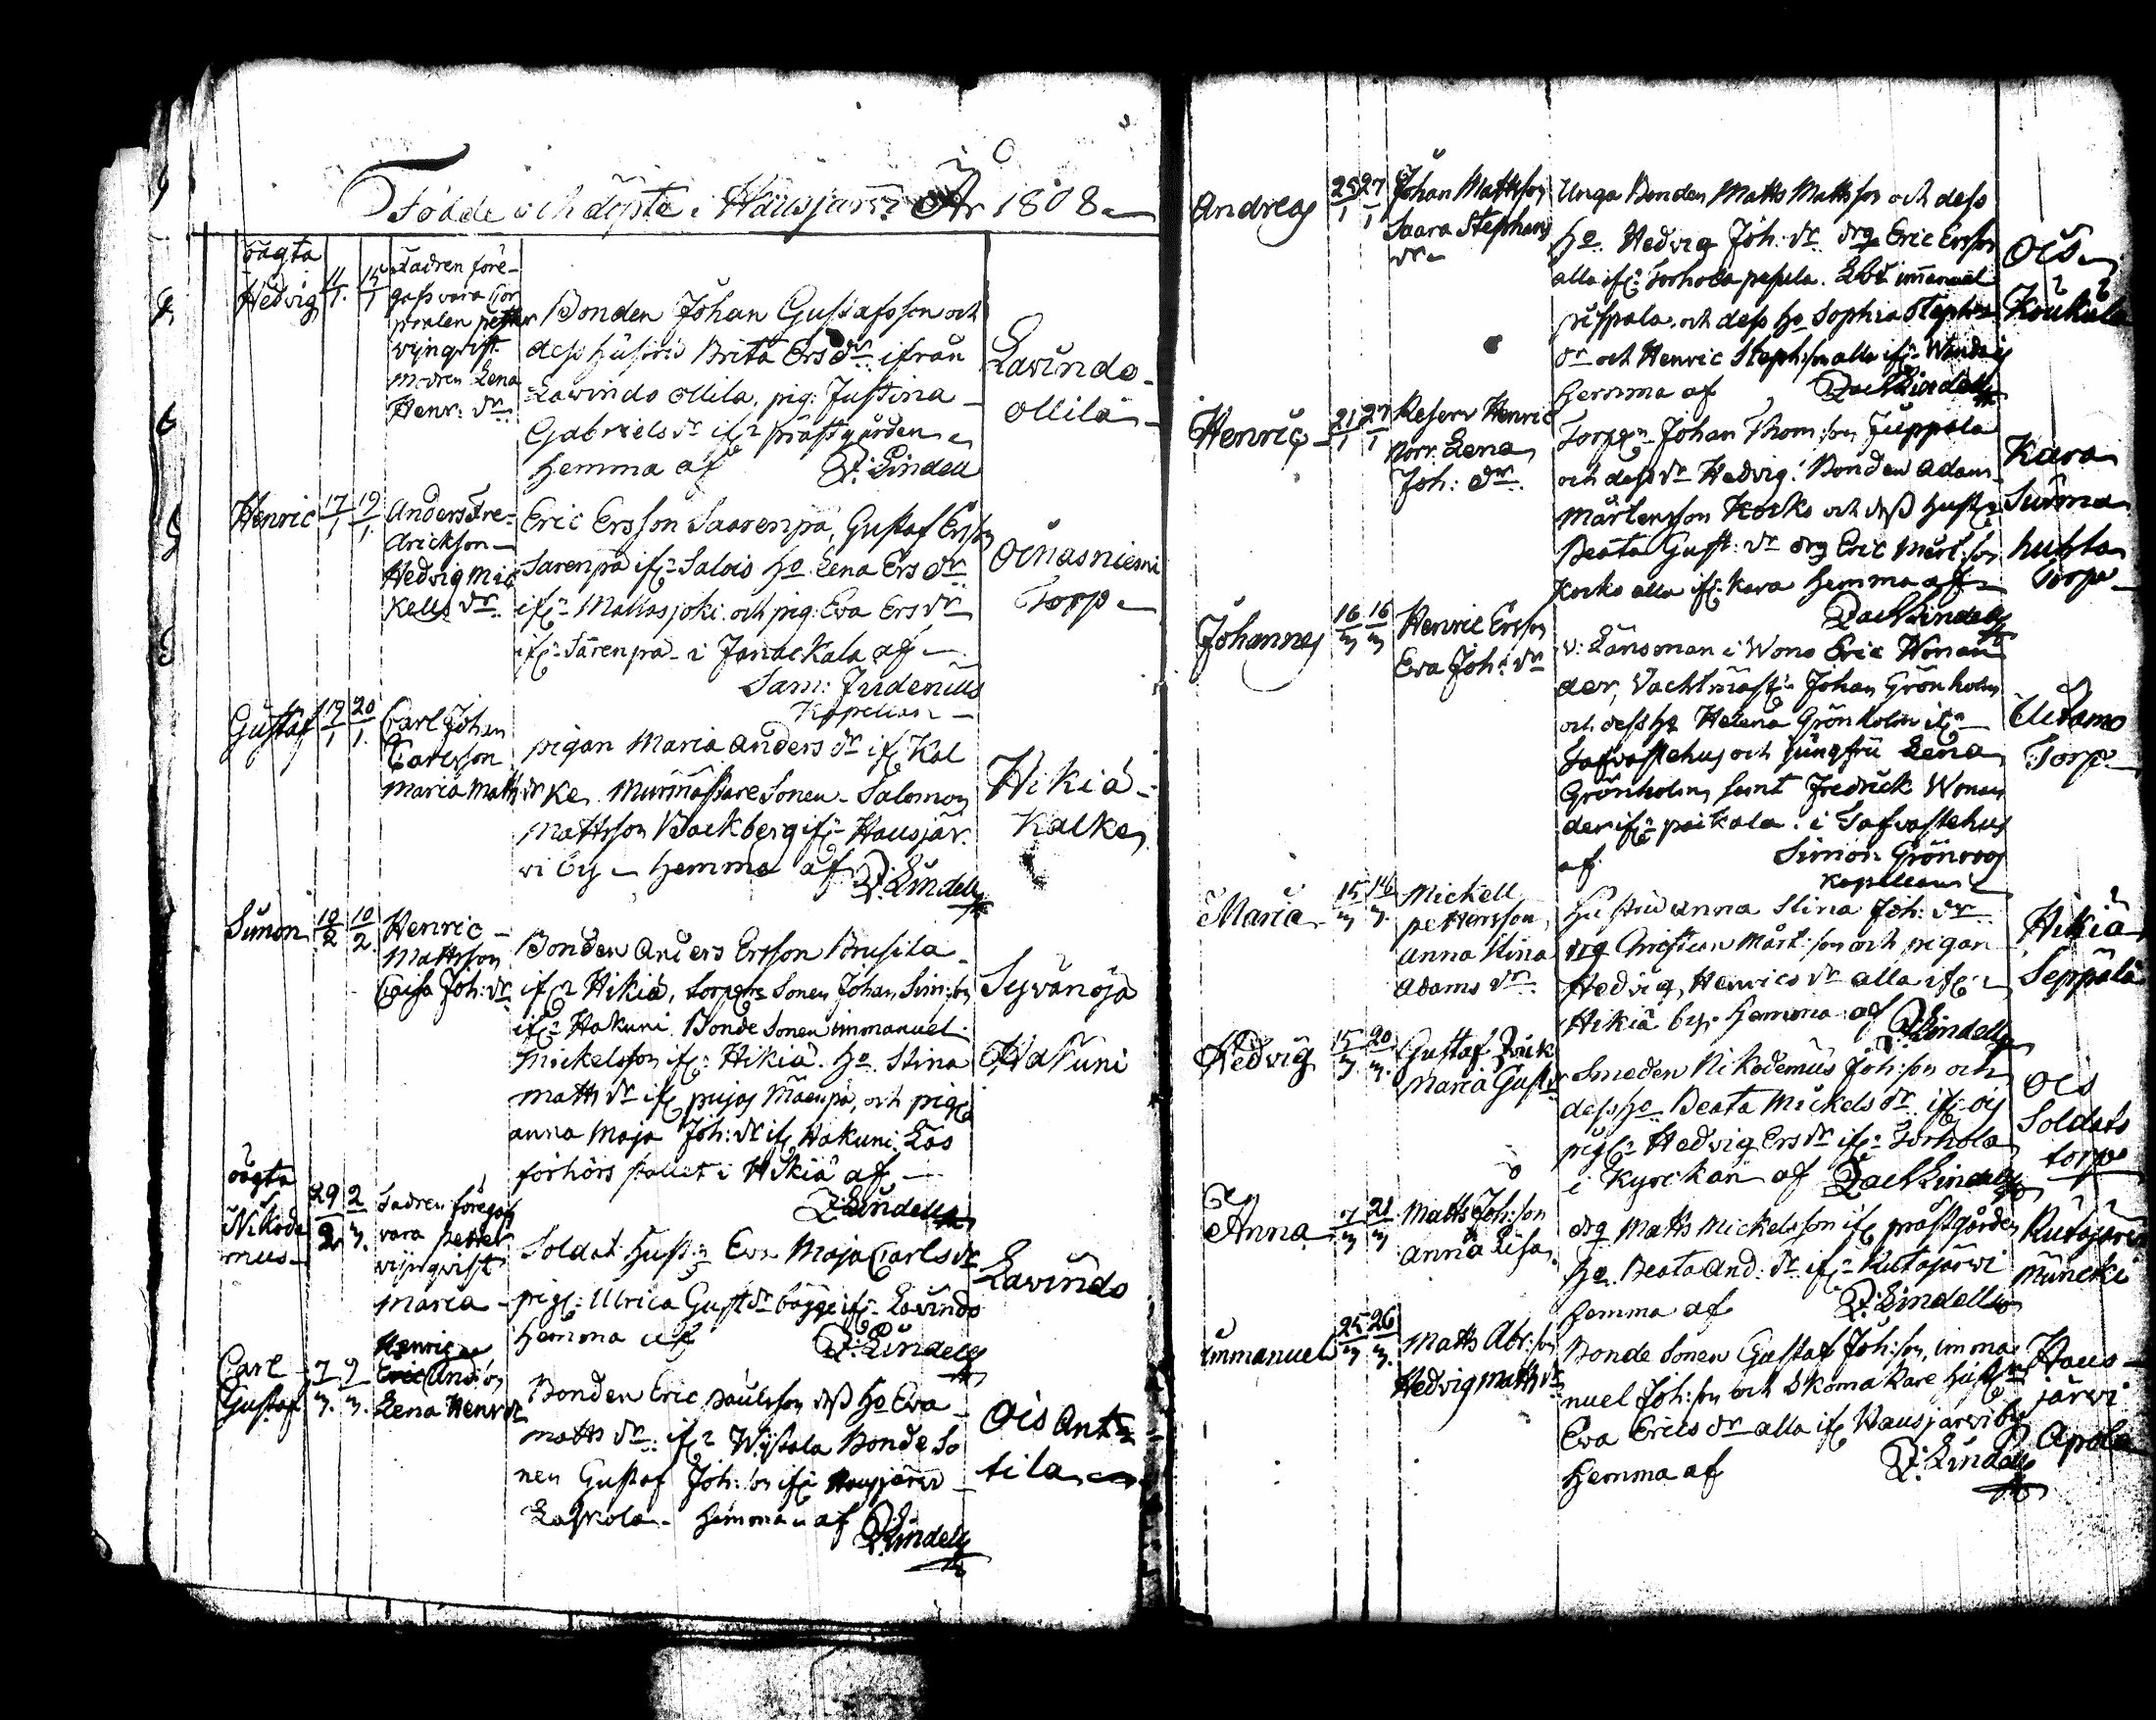 Födde och döpte i Hausjärvi År 1808
oägta
Hedvig 11/1 15/1
Fadren före-
gafs vara Cor
poralen petter
vijnqvist
modren Lena
Henr: dr
Bonden Johan Gustafsson och
dess hustru Brita Ers dr ifrån
Lavindo ollila, pig: Justina
Gabriels dr ifr prästgården
hemma af Z: Lindell
Lavindo
ollila
Henric 17/1 19/1
Anders Fre-
drickson
Hedvig Mic
kells dr
Eric Ersson Saarenpä, Gustaf Ersson
Sarenpä ifr Salois ho Lena Ers dr
ifr Mallasjoki och pig: Eva Ers dr
ifr Särenpä i Janackala af
Sam: Judenius
Kapellan
Oinasniemi
Torp
Gustaf 19/1 20/1
Carl Johan
Carlsson
Maria Matts dr
pigan Maria Anders dr ifr Kal
ke, Murmästare Sonen Salomon
Mattsson Backberg ifr Hausjär
vi by hemma af Z: Lindell
Hikiä
Kalke
Simon 10/2 10/2
Henric
Mattsson
Caisa Joh: dr
Bonden Anders Ersson Prusila
ifr Hikiä, torpare Sonen Johan Sim: son
ifr Hakuni Bonde Sonen immanuel
Mickelsson ifr Hikiä. ho Stina
matts dr ifr pujos Mäenpä, och pigan
anna Maja Joh: dr ifr Hakuni: Läs
förhörs stället i Hikiä af
Z: Lindell
Syvänoja
Hakuni
oägta
Nikode
mus 29/2 2/3
Fadren föregafs
vara petter
vijnqvist
Maria
Soldat hust: Eva Maja Carls dr
pig: Ulrica Gust dr bägge ifr Lavindo
hemma af Z: Lindell
Lavindo
Carl
Gustaf 7/3 9/3
Henric
And: son
Lena Henr dr
Bonden Eric paulsson dess ho Eva
matts dr: ifr Wijsala Bonde So
nen Gustaf Joh: son ifr Hausjärvi
Laskola hemma af Z: Lindell
Ois Ant
tila
Andreas 25/1 27/1
Johan Mattsson
Saara Stephans
dr
Unga Bonden Matts Mattsson och dess
ho Hedvig Joh: dr drg Eric Ersson
alla ifr Torhola immanuel
och dess ho Sophia Stephs
dr och Henric Steph: son alla ifr
hemma af Zach Lindell
Ois
Koukula
Henric 21/1 27/1
Reserv Henric
Norr. Lena
Joh: dr
Torpn Johan Thom: son Juppola
och dess dr Hedvig: Bonden Adam
Mårtensson Korko och dess hustru
Beata Gust: dr drg Eric Mårt: son
Korko alla ifr Kara hemma af
Zach Lindell
Kara
Surma
huhta
Torp
Johannes 16/3 16/3
Henric Ersson
Eva Joh: dr
v: Länsman i Wono Eric Wonan
der, Vachtmäst: Johan Grönholm
och dess ho Helena Grönholm ifr
Tafvastehus och jungfru Lena
Grönholm, samt Fredrick Wonan
der ifr paikala. i Tafvastehus
af Simon Grönroos
Kapellan
Torp
Maria 15/3
Mickell
pettersson
anna Stina
Adams dr
Hustru anna Stina Joh: dr
drg Christian Mårt: son och pigan
Hedvig Henrics dr alla ifr
Hikiä by. hemma af Z: Lindell
Hikiä
Seppälä
Hedvig 15/3 20/3
Gustaf
Maria Gust dr
Smeden Nikodemus Joh: son och
dess ho Beata Mickels dr ifr ois
pigan Hedvig Ers dr ifr Torhola
i Kyrckan af Zach Lindell
Ois
Soldats
torp
Anna 7/3 21/3
Matts Joh: son
anna Lisa
drg Matts Mickelsson ifr prästgården
ho Beata And: dr ifr Kutajärvi
hemma af Z: Lindell
Kutajärvi
Muncki
immanuel 25/3 26/3
Matts Abr: son
Hedvig Matts dr
Bonde Sonen Gustaf Joh: son, imma
nuel Joh: son och Skomakare hustru
Eva Erics dr alla ifr Hausjärvi by
hemma af Z: Lindell
Haus
järvi
Apola